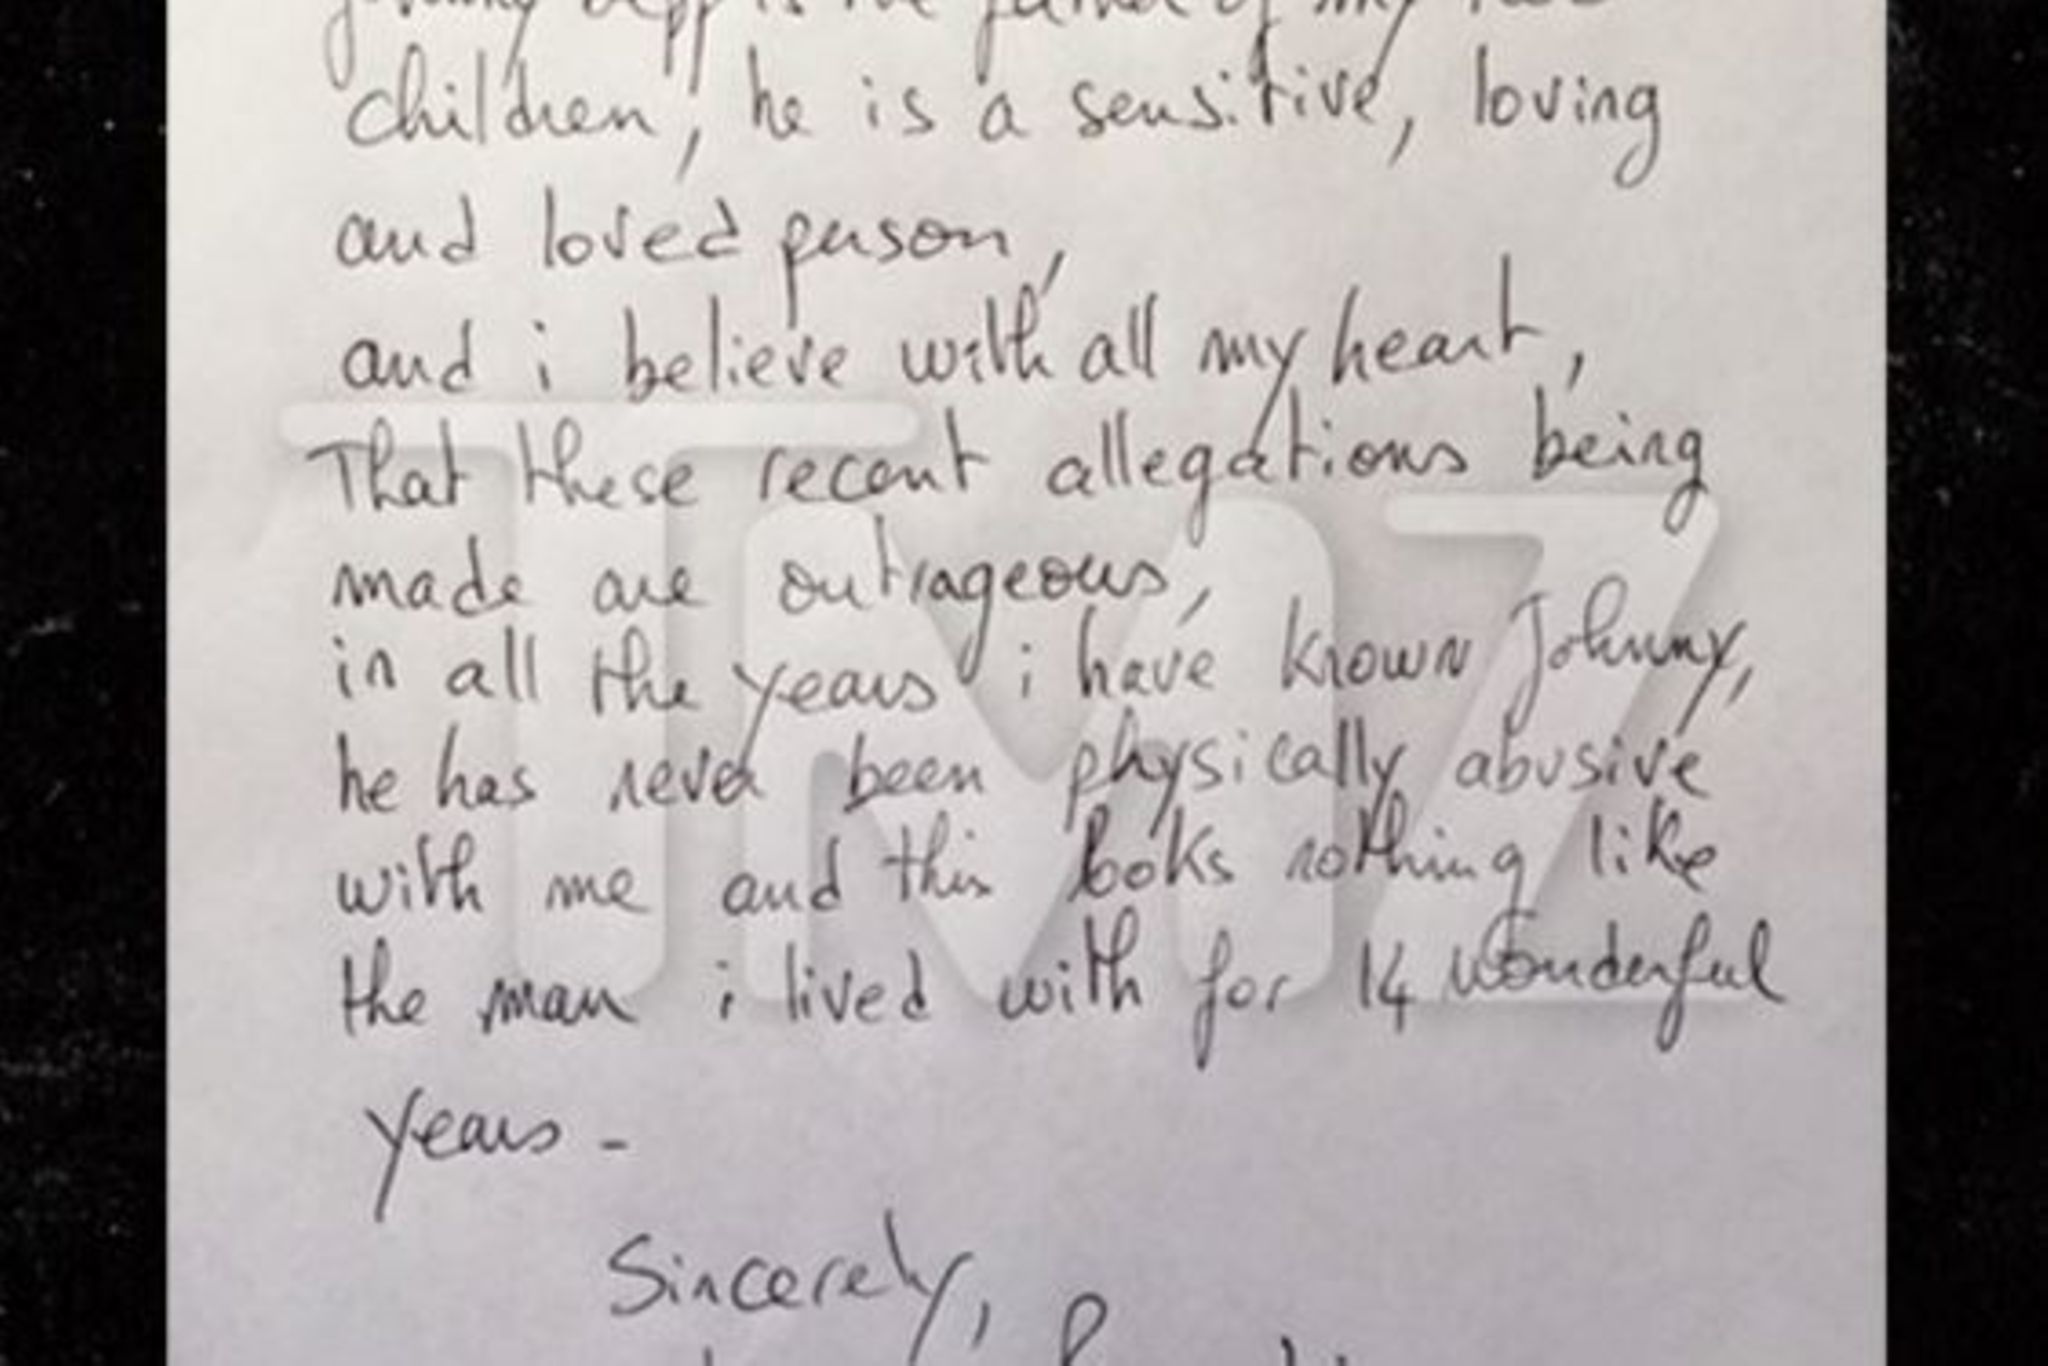 Johnny Depp is the father of my two
children, he is a sensitive, loving
and loved person,
and i believe with all my heart,
That these recent allegations being
made are outrageous,
in all the years i have known Johnny,
he has never been physically abusive
with me and this looks nothing like
the man i lived with for 14 wonderful
years -
Sincerely,
TMZ